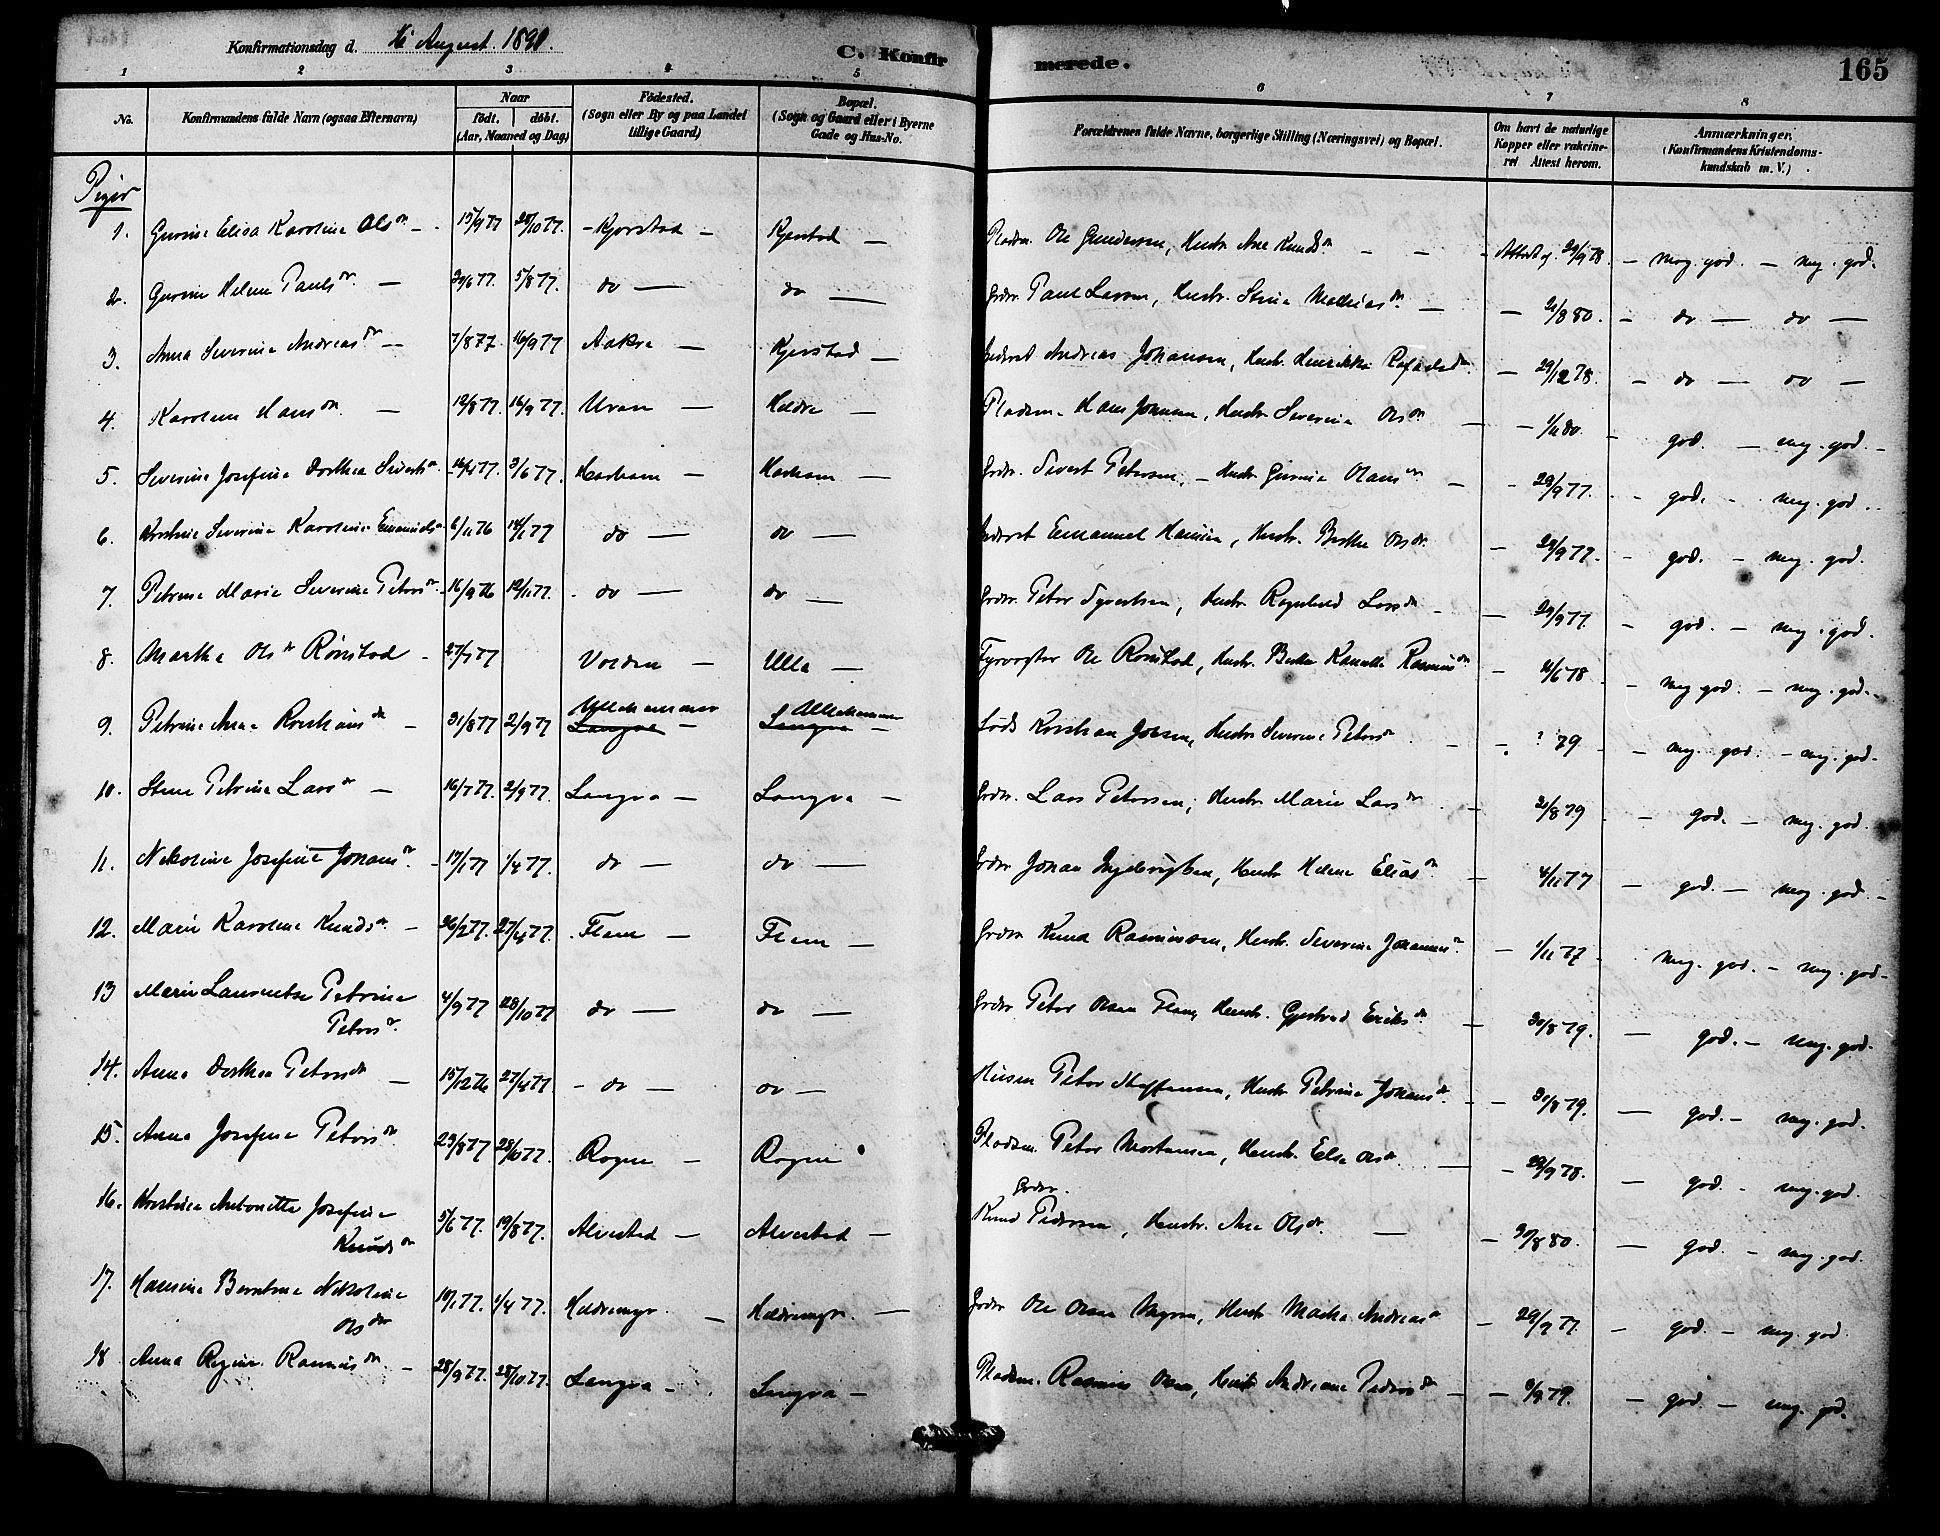 Konfirmationsdag d. 16 August. 1891.
C. Konfirmerede.
165
1 2 3 4 5 6 7 8
No. Konfirmandens fulde Navn (ogsaa Efternavn) Naar født. døbt. (Aar, Maaned og Dag) Fødested. (Sogn eller By og paa Landet tillige Gaard) Bopæl. (Sogn og Gaard eller i Byerne Gade og Hus-No. Forældrenes fulde Navne, borgerlige Stilling (Næringsvei) og Bopæl. Om havt de naturlige Kopper eller vakcineret Attest herom. Anmærkninger. (Konfirmandens Kristendomskundskab m. V.)
Piger
1. Gurine Elisa Karoline Olsdr 15/9 77 28/10 77. Kjerstad Kjerstad Pladsm. Ole Gundersen, Hustr. Ane Knudsdr Attest af 29/9 78. meg. god. meg. god.
2. Gurine Helene Paulsdr. 29/6 77. 5/8 77. do do Grdbr. Paul Larsen, Hustr. Stine Mathiasdr. 21/8 80. do do
3. Anna Severine Andreasdr 7/8 77. 16/9 77 Aakre Kjerstad Inderst Andreas Johansen, Hustr. Henrikke Rafaelsdr. 29/12 78. do do
4. Karoline Hansdr. 12/8 77. 16/9 77. Uran Hildre Pladsm. Hans Johnsen, Hustr Severine Olsdr 1/11 80. god. meg. god.
5. Severine Josefine Dorthea Sivertsdr. 16/4 77. 3/6 77. Harham Harham Grdbr. Sivert Petersen, Hustr Gurine Olausdr 29/9 77. god. meg. god.
6. Kristine Severine Karoline Emanuelsdr 6/11 76 14/1 77 do do Inderst Emanuel Hansen, Hustr. Berthe Olsdr. 29/9 77. god. meg. god.
7. Petrine Marie Severine Petersdr. 16/9 76 12/11 77. do do Grdbr. Peter Syvertsen, Hustr. Ragnhild Larsdr 29/9 77. god. meg. god.
8. Martha Olsdr Rønstad 27/7 77 Volden Ulla Fyrvogter Ole Rønstad, Hustr. Berthe Kanutte Rasmusdr 4/6 78 meg god. meg. god.
9. Petrine Anna Kristiansdr 31/8 77 2/9 77 Ullahammer Longva Ullahammer Longva Løds Kristian Johnsen, Hustr Severine Petersdr ? 79 meg. god. meg. god.
10. Stine Petrine Larsdr 16/7 77. 2/9 77. Longva Longva Grdbr. Lars Petersen, Hustr Marie Larsdr 21/8 79 god. meg. god.
11. Nikoline Josefine Johansdr. 17/1 77 1/4 77. do do Grdbr Johan Ingebrigtsen, Hustr Helene Eliasdr 4/11 77 god. meg. god.
12. Marie Karoline Knudsdr. 26/2 77. 27/4 77. Flem Flem Grdbr Knud Rasmussen, Hustr. Severine Johannesdr. 1/11 77 meg. god. meg. god.
13 Marie Laurentse Petrine Petersdr. 4/9 77 28/10 77 do do Grdbr Peter Olsen Flem, Hustr. Gjertrud Eriksdr. 30/8 79. god. meg. god.
14. Anne Dorthea Petersdr 15/12 76 27/4 77. do do Husm Peter Steffensen, Hustr Petrine Johansdr. 31/8 79. god. meg. god.
15. Anna Josefine Petersdr. 23/8 77 28/10 77. Rogne Rogne Pladsm. Peter Mortensen, Hustr. Else Olsdr. 29/9 78. god. meg. god.
16. Kristine Antonette Josefine Knudsdr 5/6 77. 19/8 77. Alvestad Alvestad Grdbr. Knud Pedersen, Hustr. Ane Olsdr. 30/8 80. god. meg. god.
17. Hansine Berntine Nikoline Olsdr 10/1 77. 1/4 77. Hildremyr. Hildremyr. Grdbr Ole Olsen Myren, Hustr Martha Andreasdr 29/9 77. god. meg. god.
18 Anna Regine Rasmusdr. 28/9 77. 28/10 77. Longva Longva Pladsm. Rasmus Olsen, Hustr Andreane Pedersdr 9/9 79. god. meg. god.